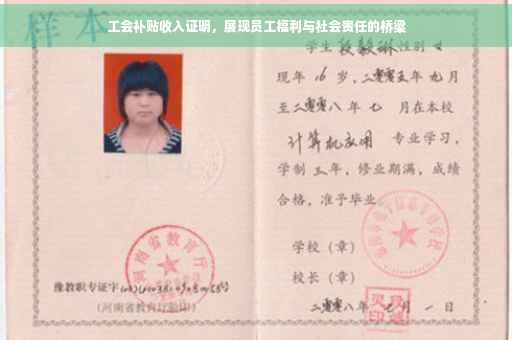 工会补贴收入证明，展现员工福利与社会责任的桥梁
样本
学生段毅琳性别女
现年16岁，二零零五年九月
至二零零八年七月在本校
计算机应用 专业学习，
学制三年，修业期满，成绩
合格，准予毕业。
学校（章）
校长（章）
二零零八年七月一日
河南省教育厅
豫教职专证字
（河南省教育厅验印）